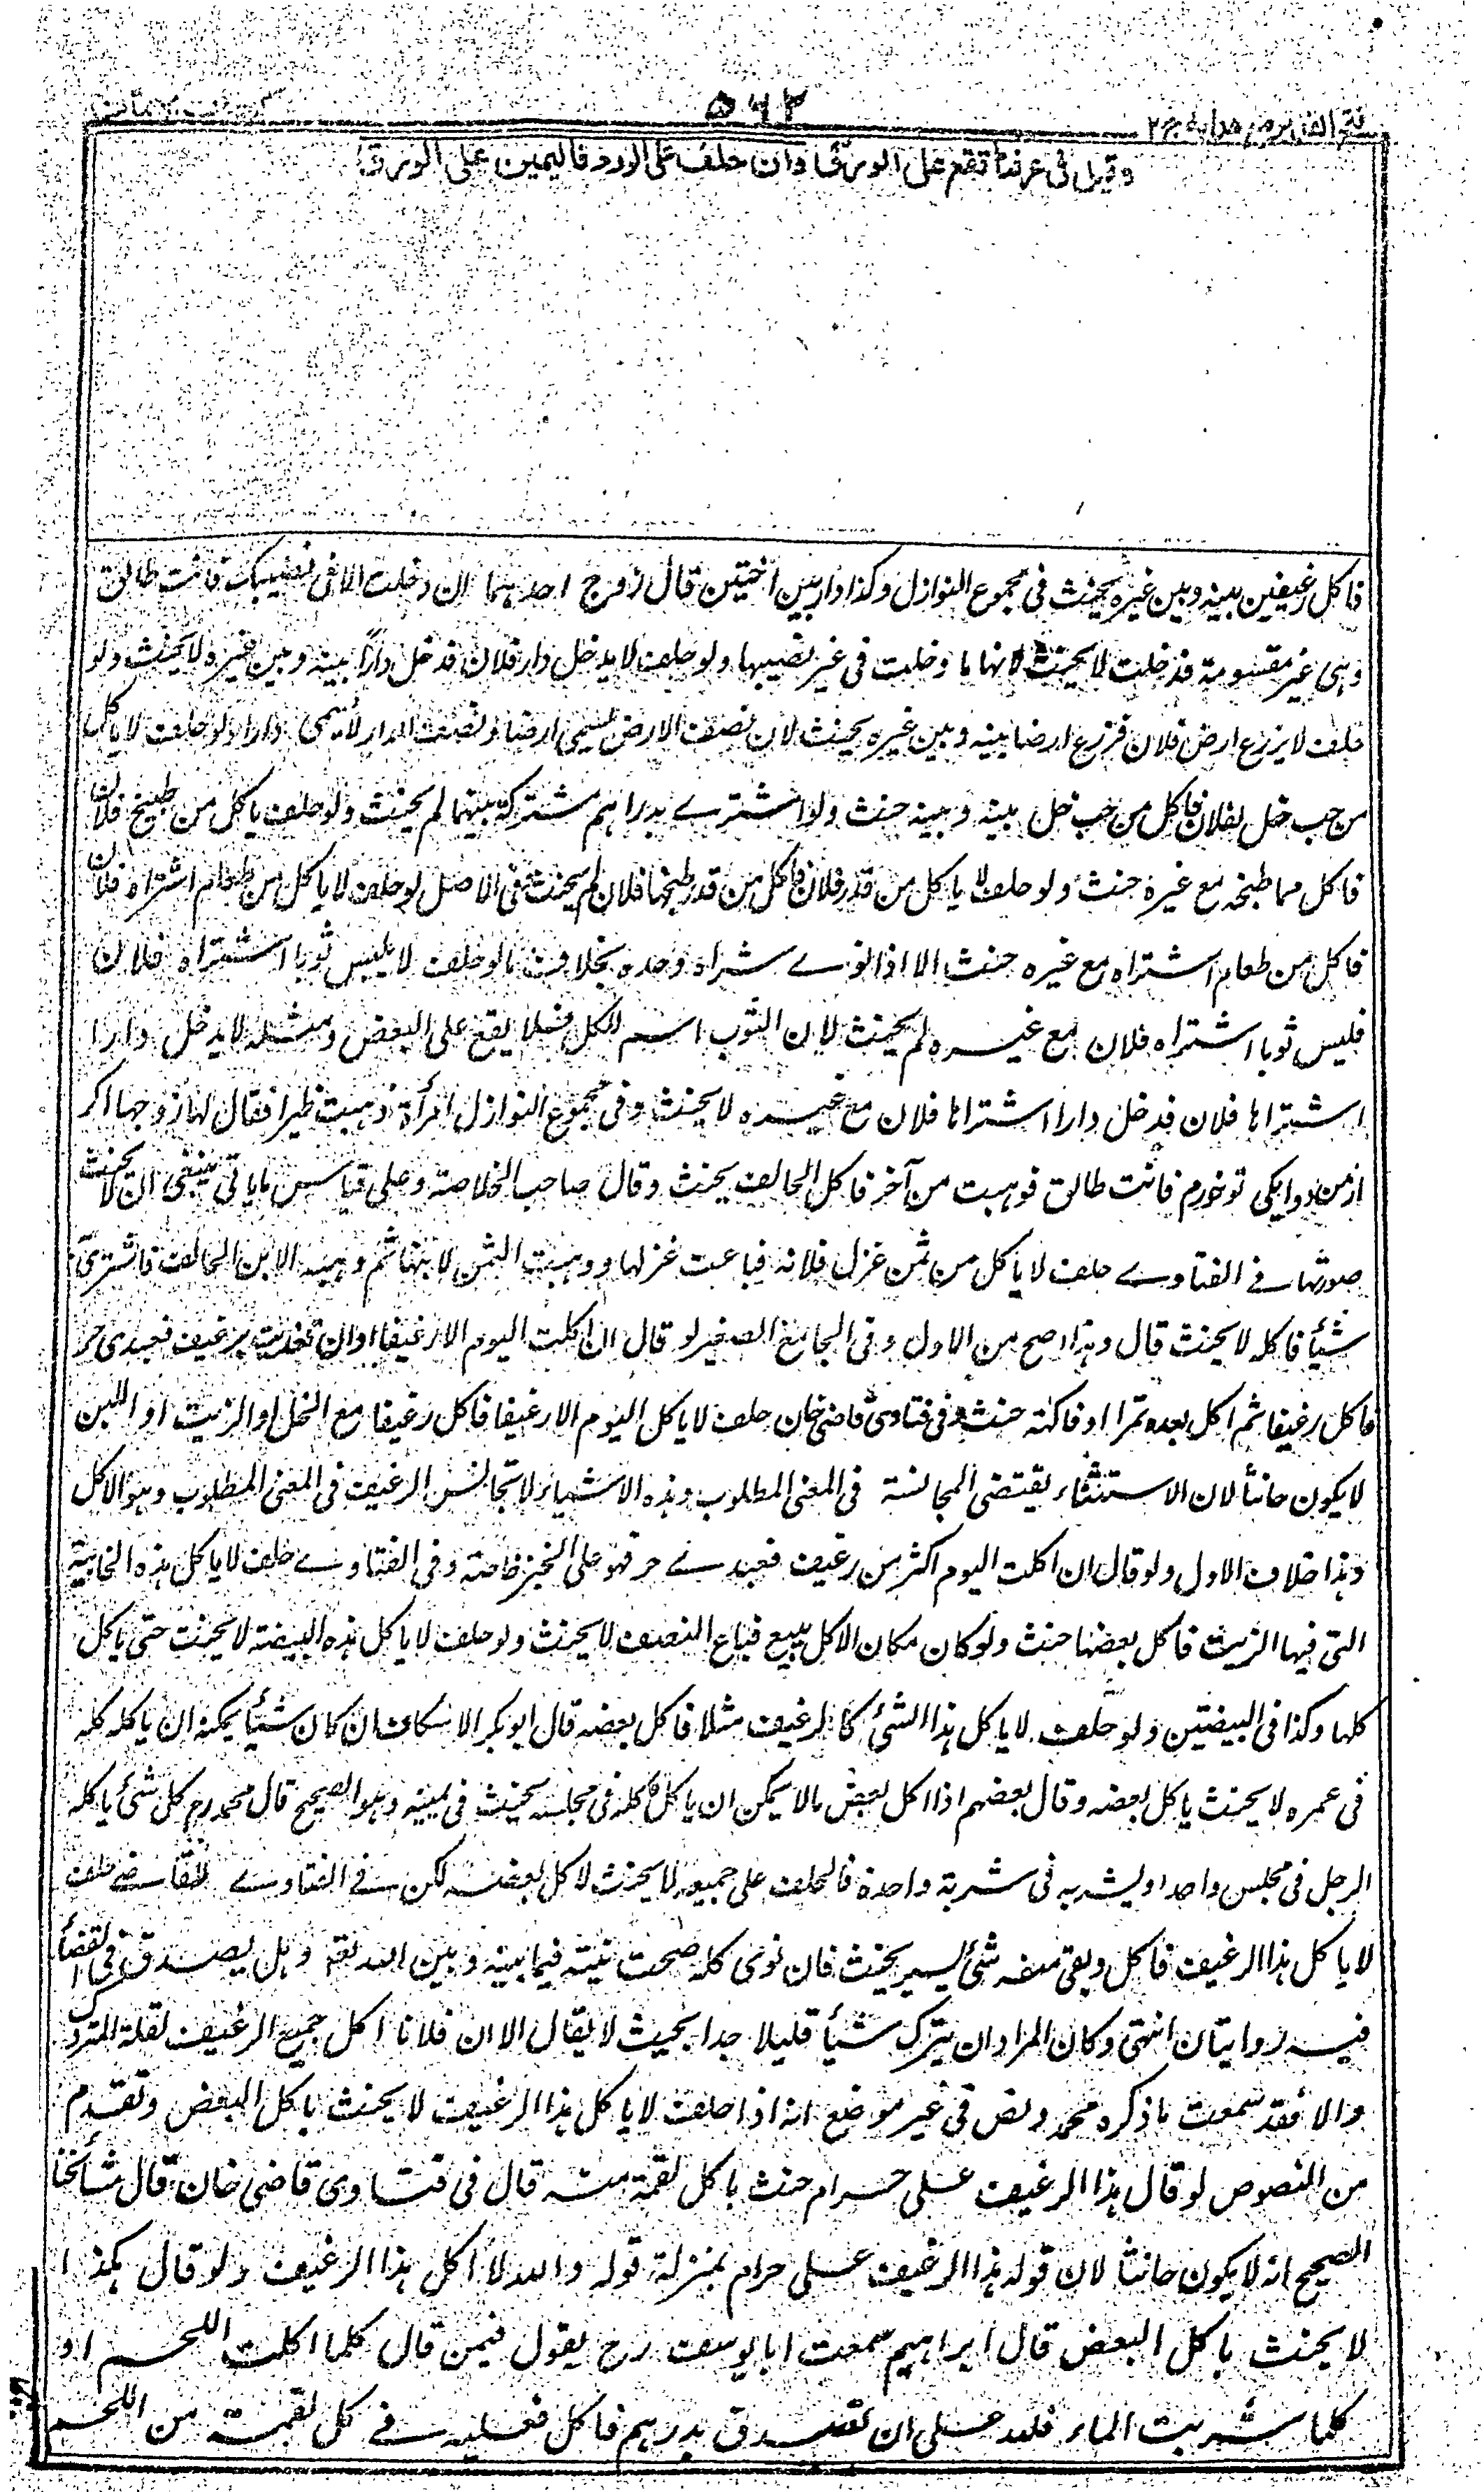 فتح القدير مع هداية ج ٢
٥٦٣
وقيل في عرفنا تقع على الورق وان حلف على الورد فاليمين على الورق
فاكل رغيفين بينه وبين غيره يحنث في مجموع النوازل وكذا دار بين اختين قال زوج احدهما ان دخلت الا في نصيبك فانت طالق
وهي غير مقسومة فدخلت لا يحنث لانها ما دخلت في غير نصيبها ولو حلف لا يدخل دار فلان فدخل دارا بينه وبين غيره لا يحنث ولو
حلف لا يزرع ارض فلان فزرع ارضا بينه وبين غيره يحنث لان نصف الارض يسمى ارضا ونصف الدار لا يسمى دارا ولو حلف لا ياكل
من حب خل لفلان فاكل من حب خل بينه وبينه حنث ولو اشترے بدراهم مشتركة بينهما لم يحنث ولو حلف ياكل من طبيخ فلان
فاكل مما طبخه مع غيره حنث ولو حلف لا ياكل من قدر فلان فاكل من قدر طبخها فلان لم يحنث في الاصل لو حلف لا ياكل من طعام اشتراه فلان
فاكل من طعام اشتراه مع غيره حنث الا اذا نوے شراه وحده بخلاف ما لو حلف لا يلبس ثوبا اشتراه فلان
فلبس ثوبا اشتراه فلان مع غيره لم يحنث لان الثوب اسم للكل فلا يقع على البعض ومثله لا يدخل دارا
اشتراها فلان فدخل دارا اشتراها فلان مع غيره لا يحنث وفي مجموع النوازل امرأة ذهبت ظيرا فقال لها زوجها اكر
ازمن دوايكى تو خورم فانت طالق فوهبت من آخر فاكل الحالف يحنث وقال صاحب الخلاصة وعلى قياس ما ياتى ينبغي ان لا يحنث
صورتها في الفتاوے حلف لا ياكل من ثمن غزل فلانه فباعت غزلها ووهبت الثمن لابنها ثم وهبه الابن للحالف فاشترى به
شيأ فاكله لا يحنث قال وهذا اصح من الاول وفي الجامع الصغير لو قال ان اكلت اليوم الا رغيفا او ان تغديت برغيف فعبدى حر
فاكل رغيفا ثم اكل بعده تمرا او فاكهة حنث وفي فتاوى قاضى خان حلف لا ياكل اليوم الا رغيفا فاكل رغيفا مع الخل او الزيت او اللبن
لا يكون حانثا لان الاستثناء يقتضى المجانسة في المعنى المطلوب وهذه الاشياء لا تجانس الرغيف في المعنى المطلوب وهو الاكل
وهذا خلاف الاول ولو قال ان اكلت اليوم اكثر من رغيف فعبدے حر فهو على الخبز خاصة وفي الفتاوے حلف لا ياكل هذه الخابية
التى فيها الزيت فاكل بعضها حنث ولو كان مكان الاكل بيع فباع النصف لا يحنث ولو حلف لا ياكل هذه البيضة لا يحنث حتى ياكل
كلها وكذا في البيضتين ولو حلف لا ياكل هذا الشئ كالرغيف مثلا فاكل بعضه قال ابو بكر الاسكاف ان كان شيأ يمكنه ان ياكله كله
في عمره لا يحنث باكل بعضه وقال بعضهم اذا اكل بعض ما لا يمكن ان ياكل كله في مجلسه يحنث في يمينه وهو الصحيح قال محمد رح كل شئ ياكله
الرجل في مجلس واحد او يشربه في شربة واحدة فالحلف على جميعه لا يحنث لاكل بعضه لكن في الفتاوے للقاضے حلف
لا ياكل هذا الرغيف فاكل وبقى منه شئ يسير يحنث فان نوى كله صحت نيته فيما بينه وبين الله تعه وهل يصدق في القضأ
فيه روايتان انتهى وكان المراد ان يترك شيأ قليلا جدا بحيث لا يقال الا ان فلانا اكل جميع الرغيف لقلة المتروك
والا فقد سمعت ما ذكره محمد ونص في غير موضع انه اذا حلف لا ياكل هذا الرغيف لا يحنث باكل البعض وتقدم
من النصوص لو قال هذا الرغيف على حرام حنث باكل لقمة منه قال في فتاوى قاضى خان قال مشائخنا
الصحيح انه لا يكون حانثا لان قوله هذا الرغيف على حرام بمنزلة قوله والله لا اكل هذا الرغيف ولو قال هكذا
لا يحنث باكل البعض قال ابراهيم سمعت ابا يوسف رح يقول فيمن قال كلما اكلت اللحم او
كلما شربت الماء فلله على ان تصدق بدرهم فاكل فعليه في كل لقمة من اللحم